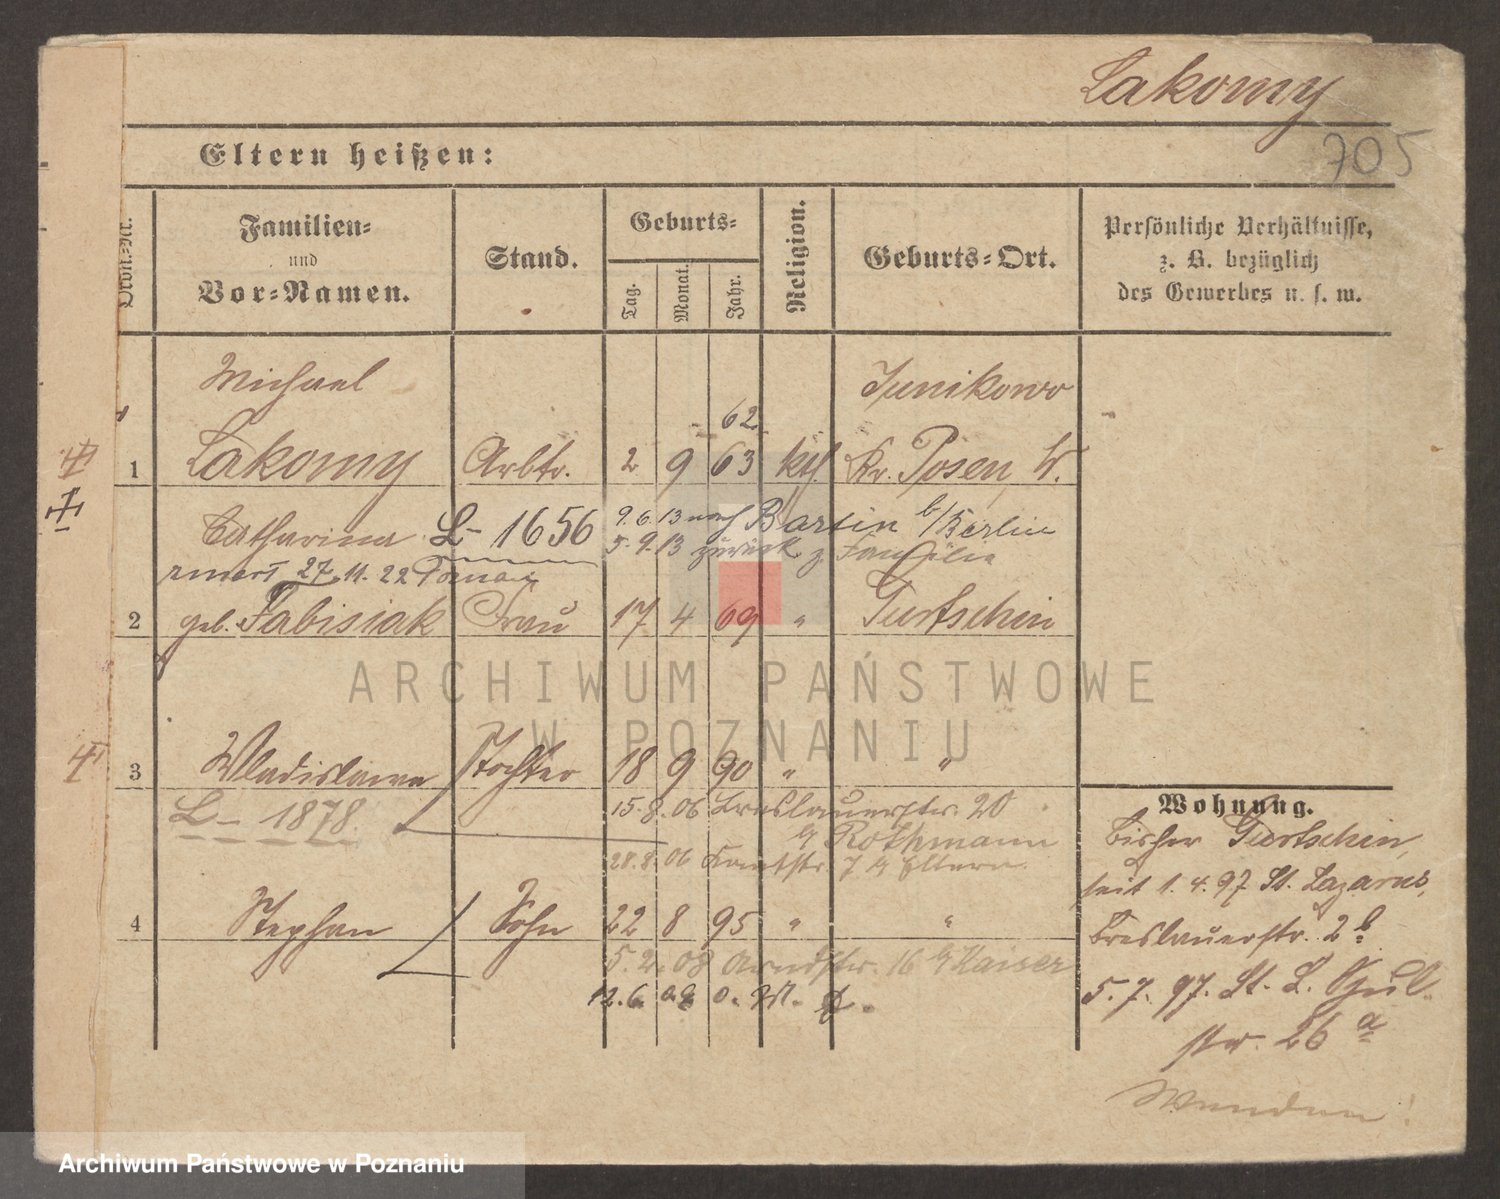 Lakomy
705
Eltern heißen:
Ordn.-Nr.
Familien-
und
Vor-Namen.
Stand.
Geburts-
Tag.
Monat.
Jahr.
Religion.
Geburts-Ort.
Persönliche Verhältnisse,
z. B. bezüglich
des Gewerbes u. s. w.
Michael Junikowo
62
1 Lakomy Arbtr. 2 9 63 kth. Kr. Posen W.
Catharina L- 1656 9.6.13 nach b/Berlin
5.9.13 zurück z. Familie
27. 11. 22
2 geb. Fabisiak Frau 17 4 69 " Gurtschin
3 Wladislawa Tochter 18 9 90 " "
L- 1878 15.8.06 Breslauerstr. 20
b/ Rothmann
28.8.06 7 b/ Eltern
4 Stephan Sohn 22 8 95 " "
5.2.08 16 b/ Kaiser
12.6.
Wohnung.
Bisher Gurtschin,
seit 1.4.97 St. Lazarus,
Breslauerstr. 2b
5.7.97. St. L. Schul-
str. 26 a
Wenden!
ARCHIWUM PAŃSTWOWE
W POZNANIU
Archiwum Państwowe w Poznaniu